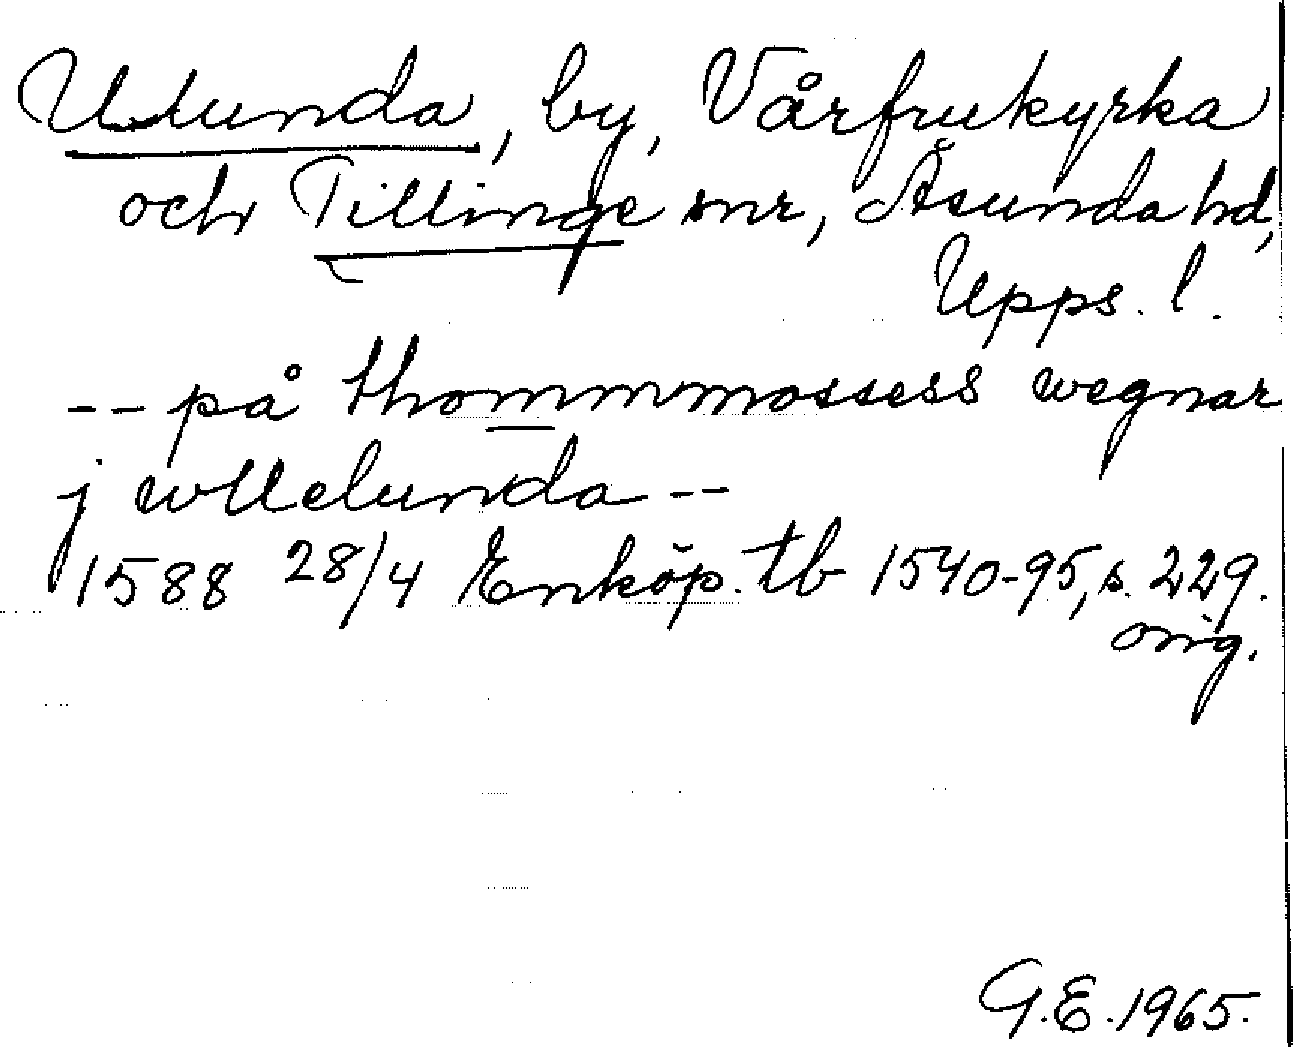 Ullunda, by, Vårfrukyrka
och Tillinge snr, Åsunda hd,
Upps. l.
-- på thommmossess wegnar
j wllelunda --
1588 28/4 Enköp. tb 1540-95, s. 229.
orig.
G.E. 1965.